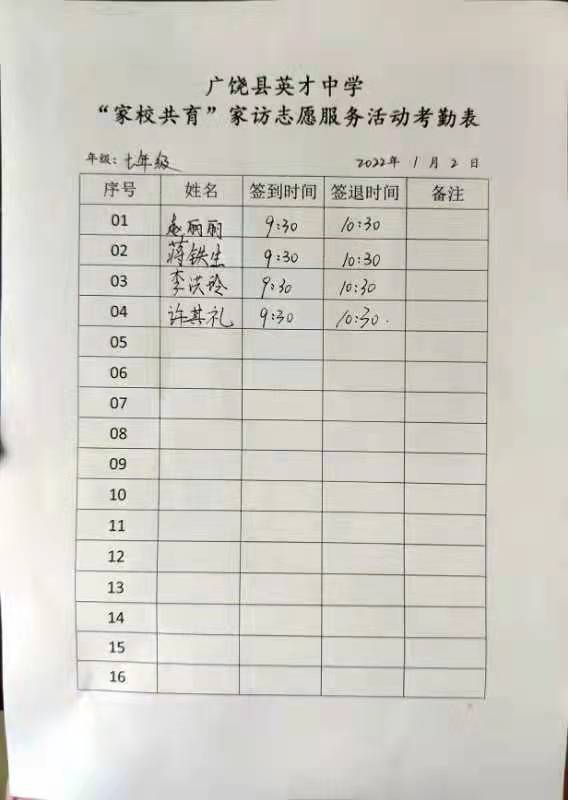 广饶县英才中学
“家校共育”家访志愿服务活动考勤表
年级：七年级 2022年 1月2日
序号 姓名 签到时间 签退时间 备注
01 赵丽丽 9:30 10:30
02 蒋铁生 9:30 10:30
03 李洪玲 9:30 10:30
04 许其礼 9:30 10:30.
05
06
07
08
09
10
11
12
13
14
15
16